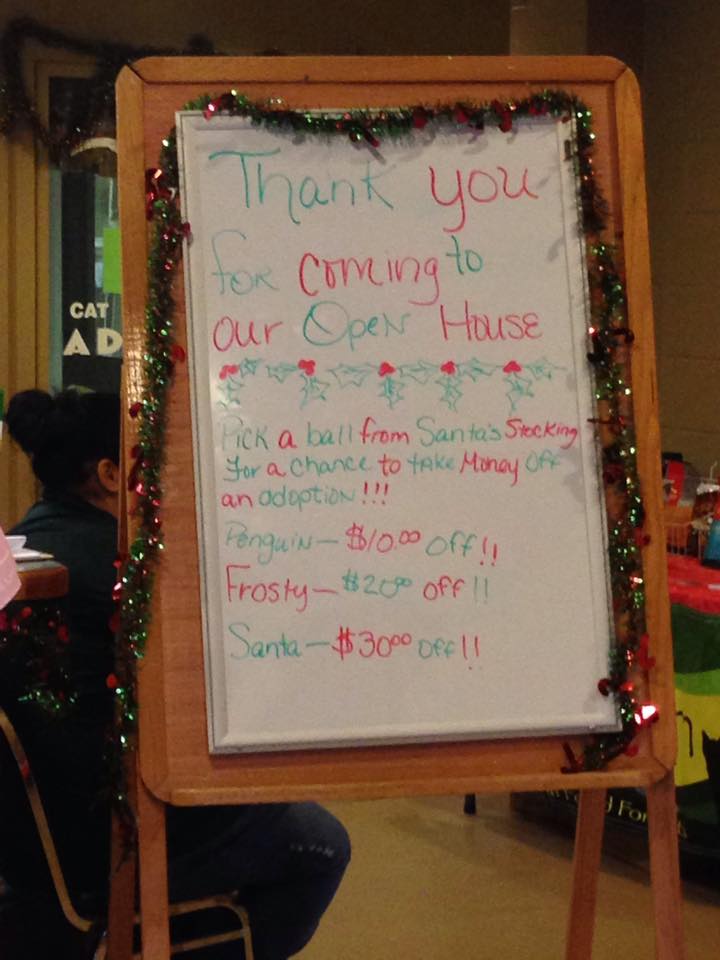 Thank you
for coming to
our Open House
Pick a ball from Santa's Stocking
for a chance to take Money Off
an adoption!!!
Penguin - $10.00 Off!!
Frosty - $20.00 off!!
Santa - $30.00 Off!!
CAT
AD